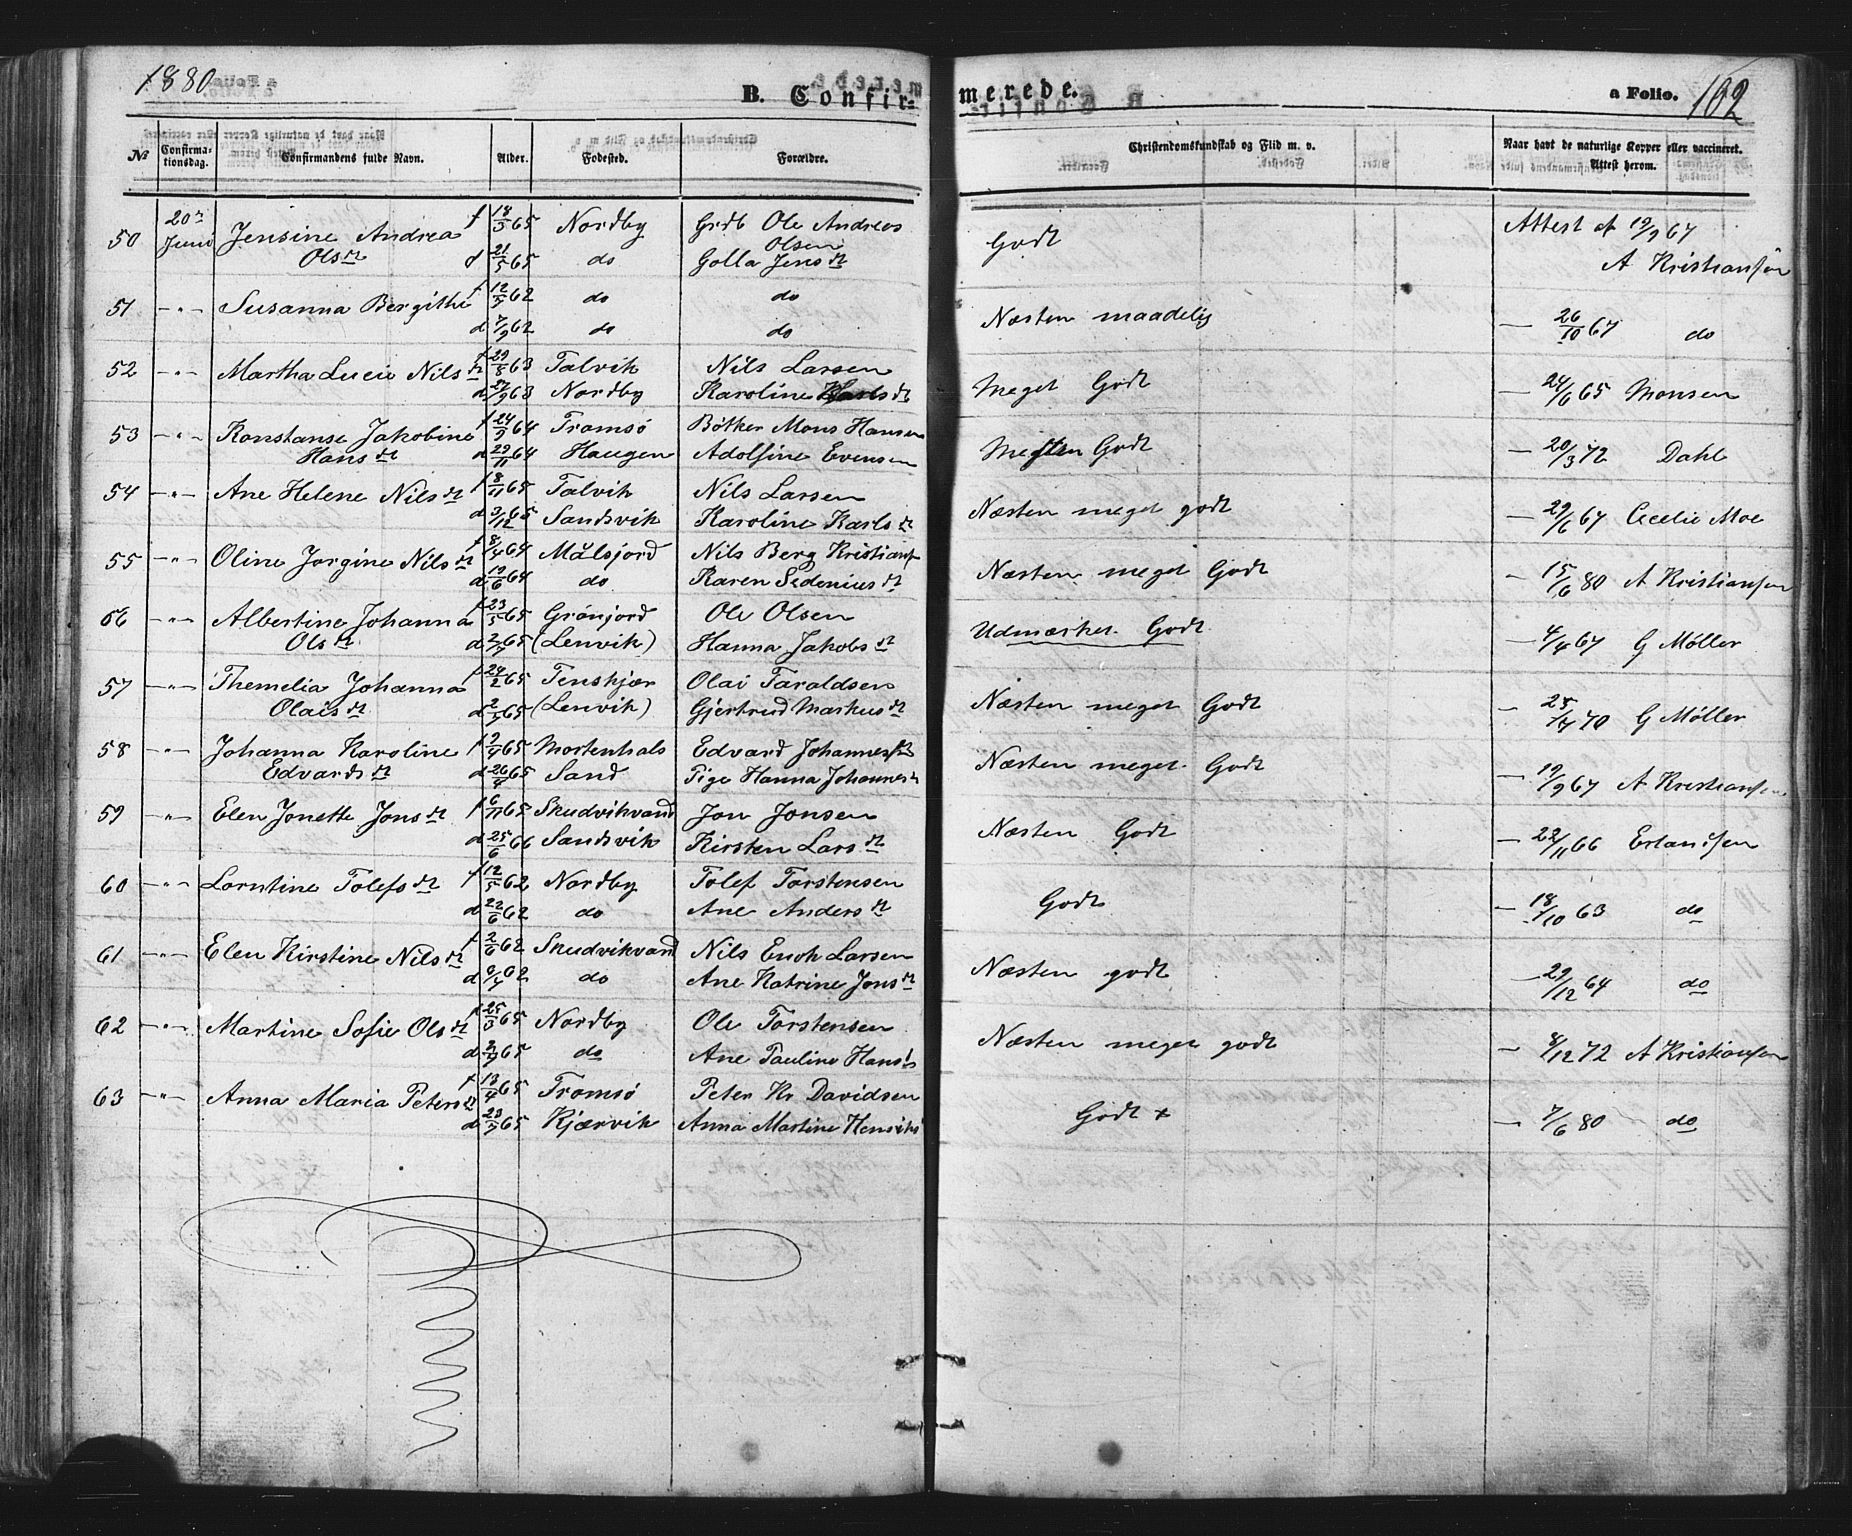 1880
B. Confirmerede.
a Folio. 102
№ Confirmationsdag. Confirmandens fulde Navn. Alder. Fødested. Forældre. Christendomskundskab og Flid m. v. Naar havt de naturlige Kopper eller vaccineret. Attest herom.
50 20n Juni Jensine Andrea f 18/3 65 Nordby Grdb Ole Andreas Olsen Godt Attest af 19/9 67
Olsdt d 21/5 65 do Golla Jensdt A Kristiansen
51 —"— Susanna Bergithe f 12/7 62 do do Næsten maadelig — 26/10 67 do
d 7/9 62 do do
52 —"— Martha Lucie Nilsdt f 29/5 63 Talvik Nils Larsen Meget Godt — 24/6 65 Monsen
d 27/9 63 Nordby Karoline Karlsdt
53 —"— Konstanse Jakobine f 24/9 64 Tromsö Bötker Mons Hansen Godt — 20/3 72 Dahl
Hansdt d 29/11 64 Haugen Adolfine Evensen
54 —"— Ane Helene Nilsdt f 8/11 65 Talvik Nils Larsen Næsten meget godt — 29/6 67 Cecelie Moe
d 3/12 65 Sandsvik Karoline Karlsdt
55 —"— Oline Jorgine Nilsdt f 8/4 64 Målsjord Nils Berg Kristians Næsten meget Godt — 15/6 80 A Kristiansen
d 19/6 64 do Karen Sedeniusdt
56 —"— Albertine Johanna f 23/5 65 Grönjord Ole Olsen Udmærket Godt — 4/4 67 G Møller
Olsdt d 2/7 65 (Lenvik) Hanna Jakobsdt
57 —"— Themelia Johanna f 24/2 65 Tenskjær Olai Taraldsen Næsten meget Godt — 25/4 70 G Møller
Olaisdt d 2/7 65 (Lenvik) Gjertrud Markusdt
58 —"— Johanna Karoline f 2/4 65 Mortenhals Edvard Johannes Næsten meget Godt — 19/9 67 A Kristiansen
Edvardsdt d 26/4 65 Sand Pige Hanna Johannes
59 —"— Elen Jonette Jonsdt f 6/11 65 Skudvikvand Jon Jonsen Næsten Godt — 22/11 66 Erlandsen
d 25/6 66 Sandsvik Kirsten Larsdt
60 —"— Lorntine Tolefsdt f 12/5 62 Nordby Tolef Torstensen Godt — 18/10 63 do
d 22/6 62 do Ane Andersdt
61 —"— Elen Kirstine Nilsdt f 2/6 62 Skudvikvand Nils Enoh Larsen Næsten godt — 29/12 64 do
d 6/7 62 do Ane Katrine Jonsdt
62 —"— Martine Sofie Olsdt f 25/3 65 Nordby Ole Torstensen Næsten meget godt — 8/12 72 A Kristiansen
d 2/7 65 do Ane Pauline Hans
63 —"— Anna Maria Petersdt f 13/4 65 Tromsö Peter Kr Davidsen Godt + — 7/6 80 do
d 23/7 65 Kjærvik Anna Martine Henriks